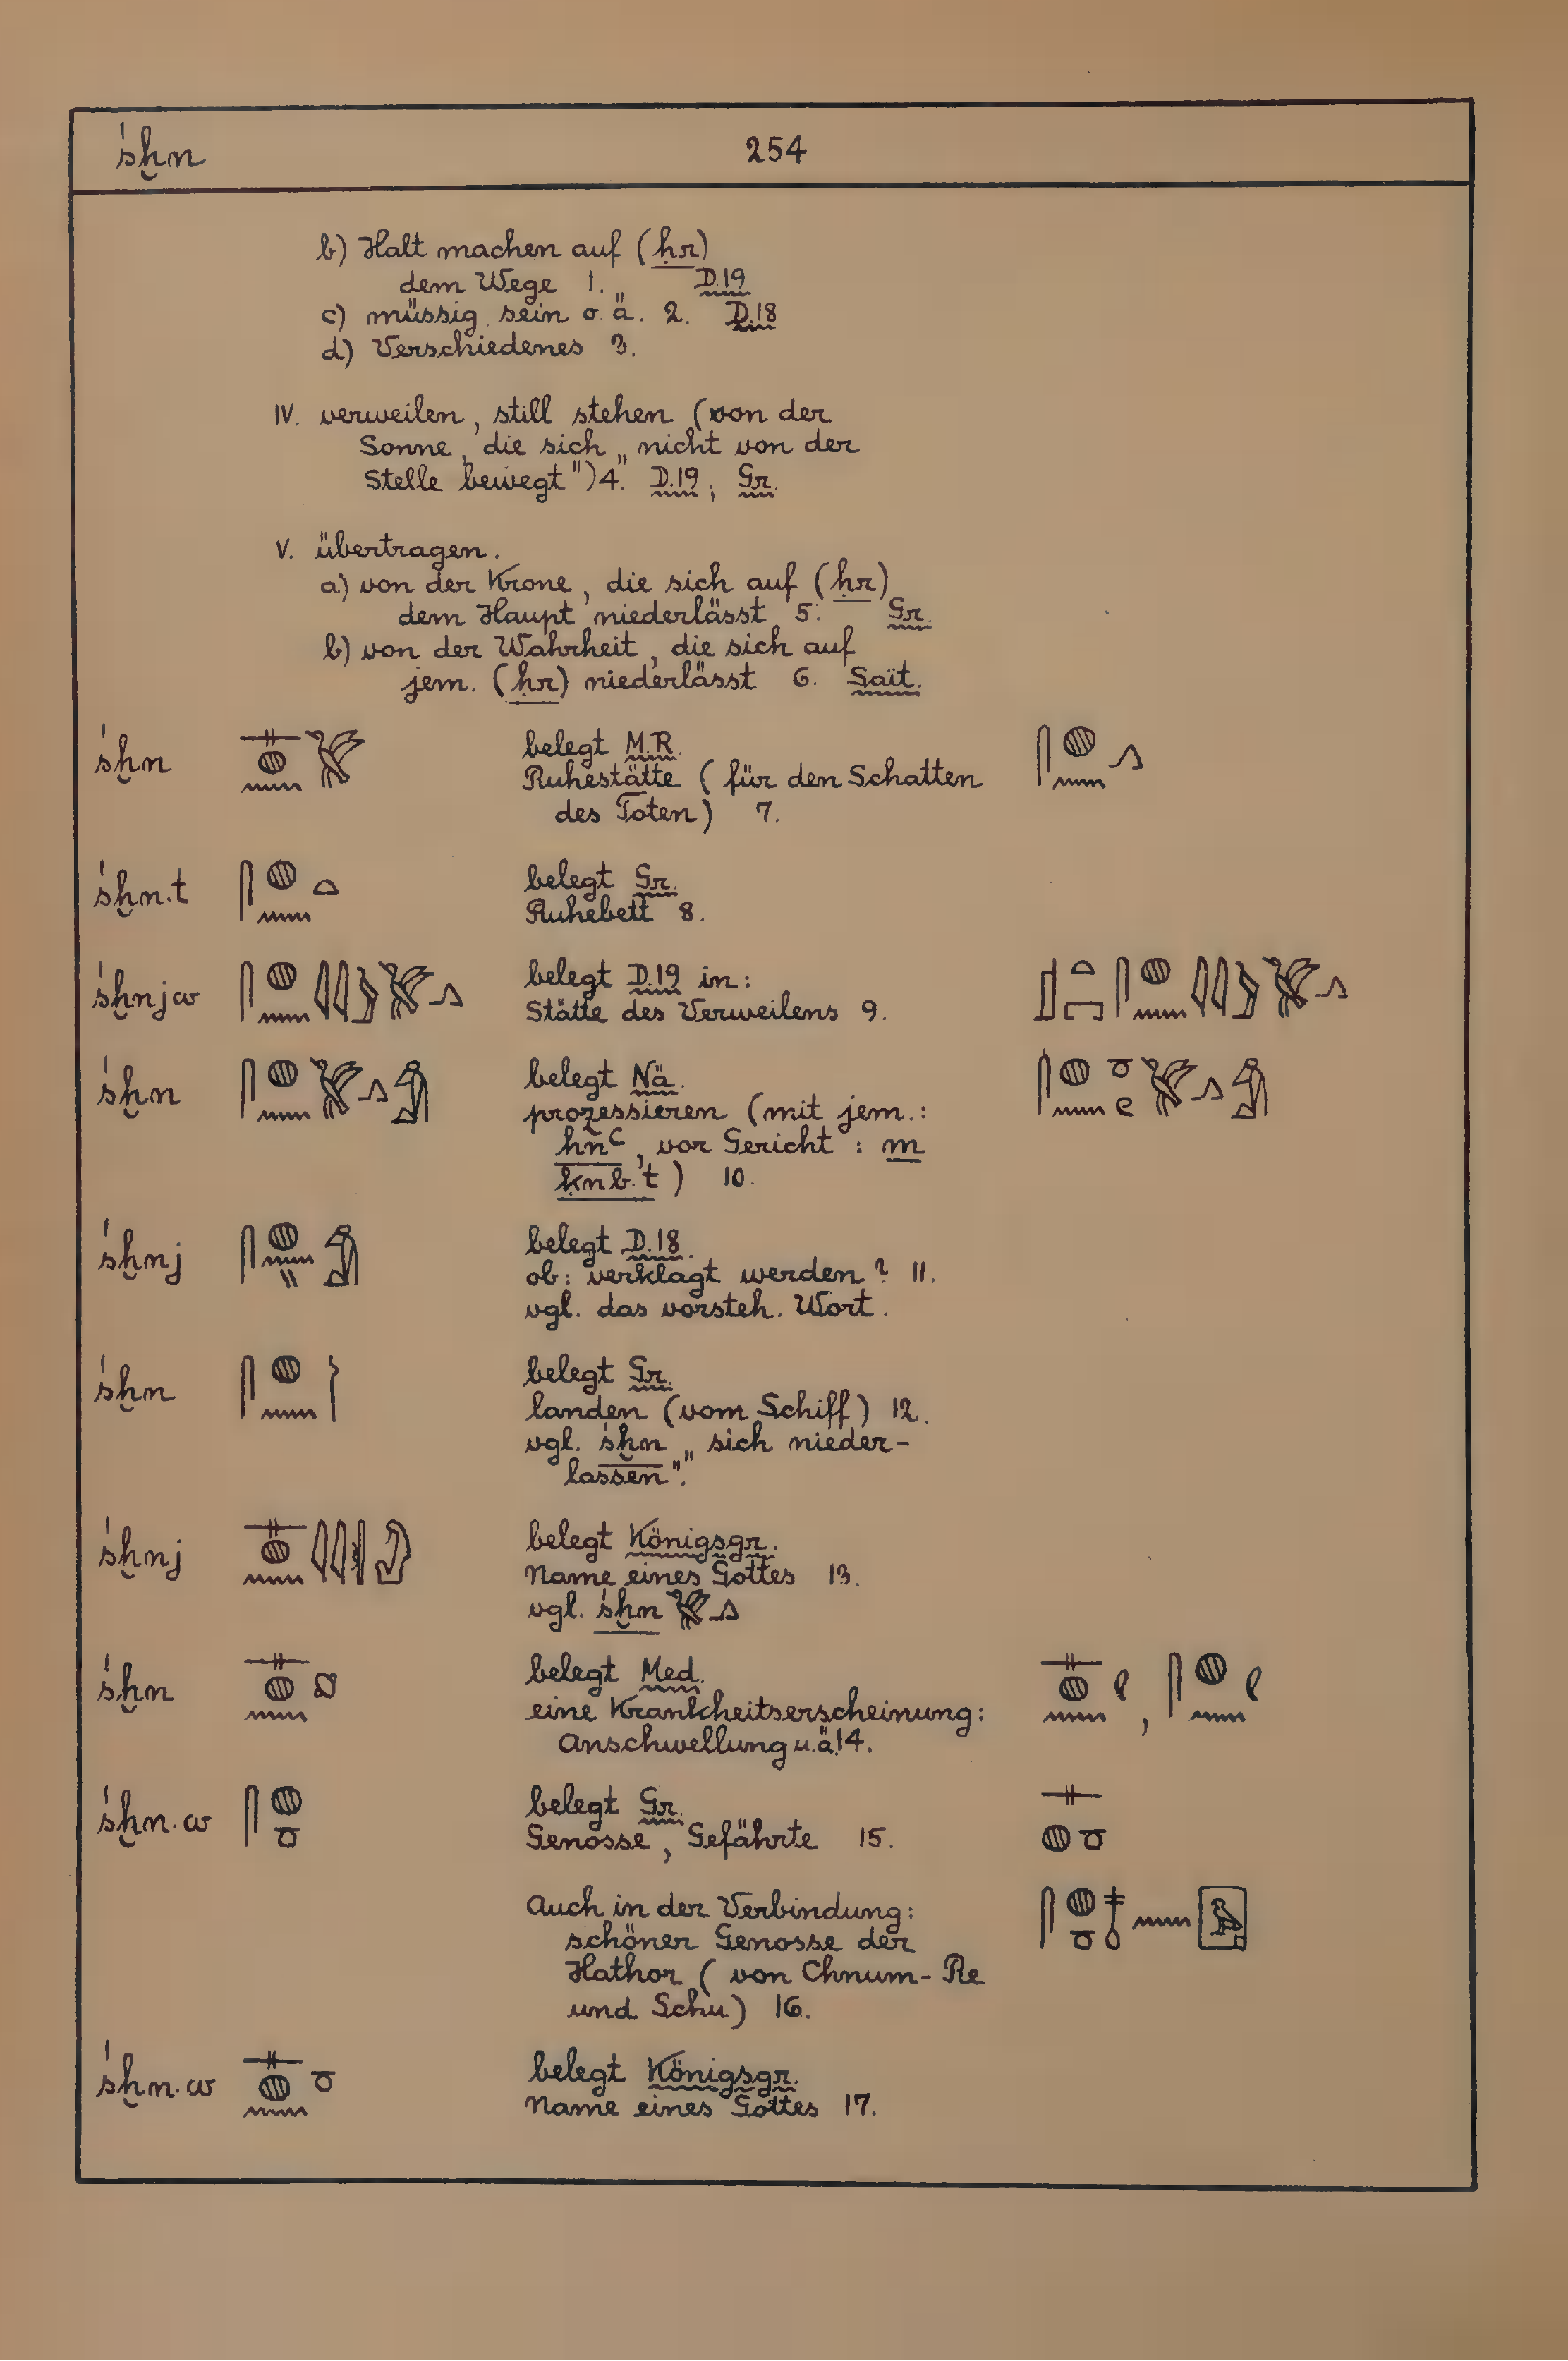 śḫn 254
b) Halt machen auf (ḥr)
dem Wege 1. D.19
c) müssig sein o. ä. 2. D.18
d) Verschiedenes 3.
IV. verweilen, still stehen (von der
Sonne, die sich „nicht von der
Stelle bewegt") 4. D.19; Gr.
V. übertragen.
a) von der Krone, die sich auf (ḥr)
dem Haupt niederlässt 5. Gr.
b) von der Wahrheit, die sich auf
jem. (ḥr) niederlässt 6. Sait.
śḫn belegt M.R.
Ruhestätte (für den Schatten
des Toten) 7.
śḫn.t belegt Gr.
Ruhebett 8.
śḫnjw belegt D.19 in:
Stätte des Verweilens 9.
śḫn belegt Nä.
prozessieren (mit jem.:
ḥnꜥ, vor Gericht: m
ḳnb.t) 10.
śḫnj belegt D.18.
ob: verklagt werden? 11.
vgl. das vorsteh. Wort.
śḫn belegt Gr.
landen (vom Schiff) 12.
vgl. śḫn „sich nieder-
lassen".
śḫnj belegt Königsgr.
Name eines Gottes 13.
vgl. śḫn
śḫn belegt Med.
eine Krankheitserscheinung:
Anschwellung u. ä. 14.
śḫn.w belegt Gr.
Genosse, Gefährte 15.
Auch in der Verbindung:
schöner Genosse der
Hathor (von Chnum-Re
und Schu) 16.
śḫn.w belegt Königsgr.
Name eines Gottes 17.